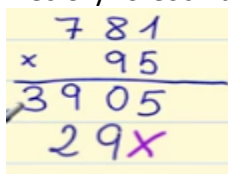 781
× 95
3905
29×